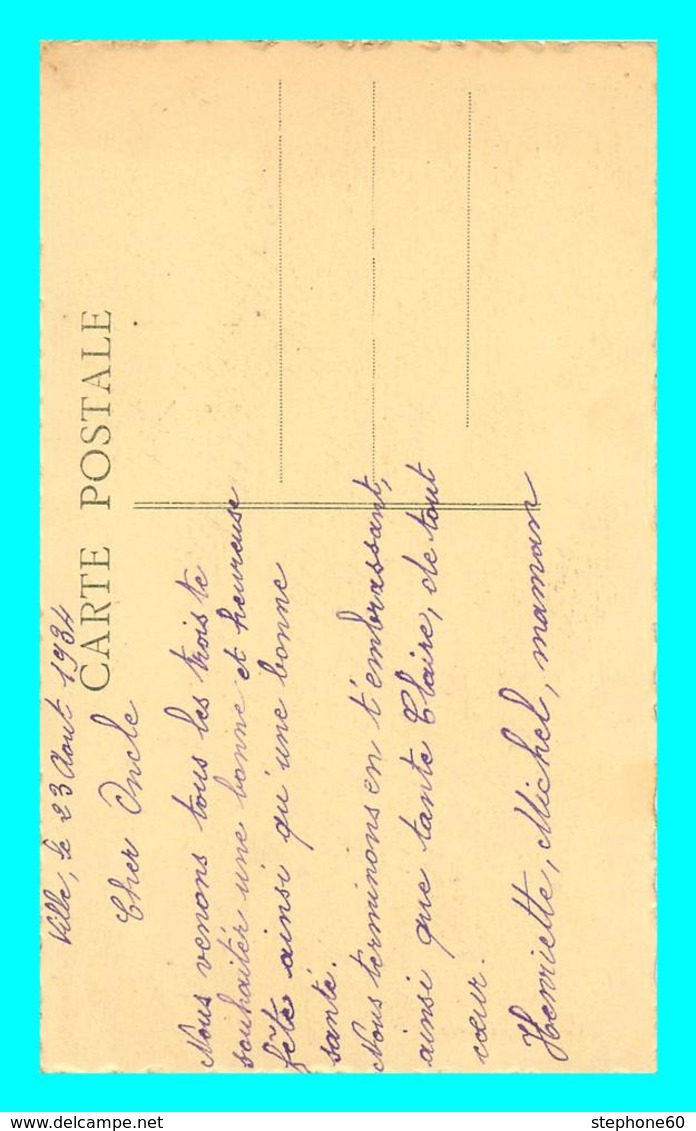 CARTE POSTALE
Ville, le 23 Aout 1934
Cher Oncle
Nous venons tous les trois te
souhaiter une bonne et heureuse
fête ainsi qu'une bonne
santé.
Nous terminons en t'embrassant,
ainsi que tante Claire, de tout
cœur.
Henriette, Michel, maman
stephone60